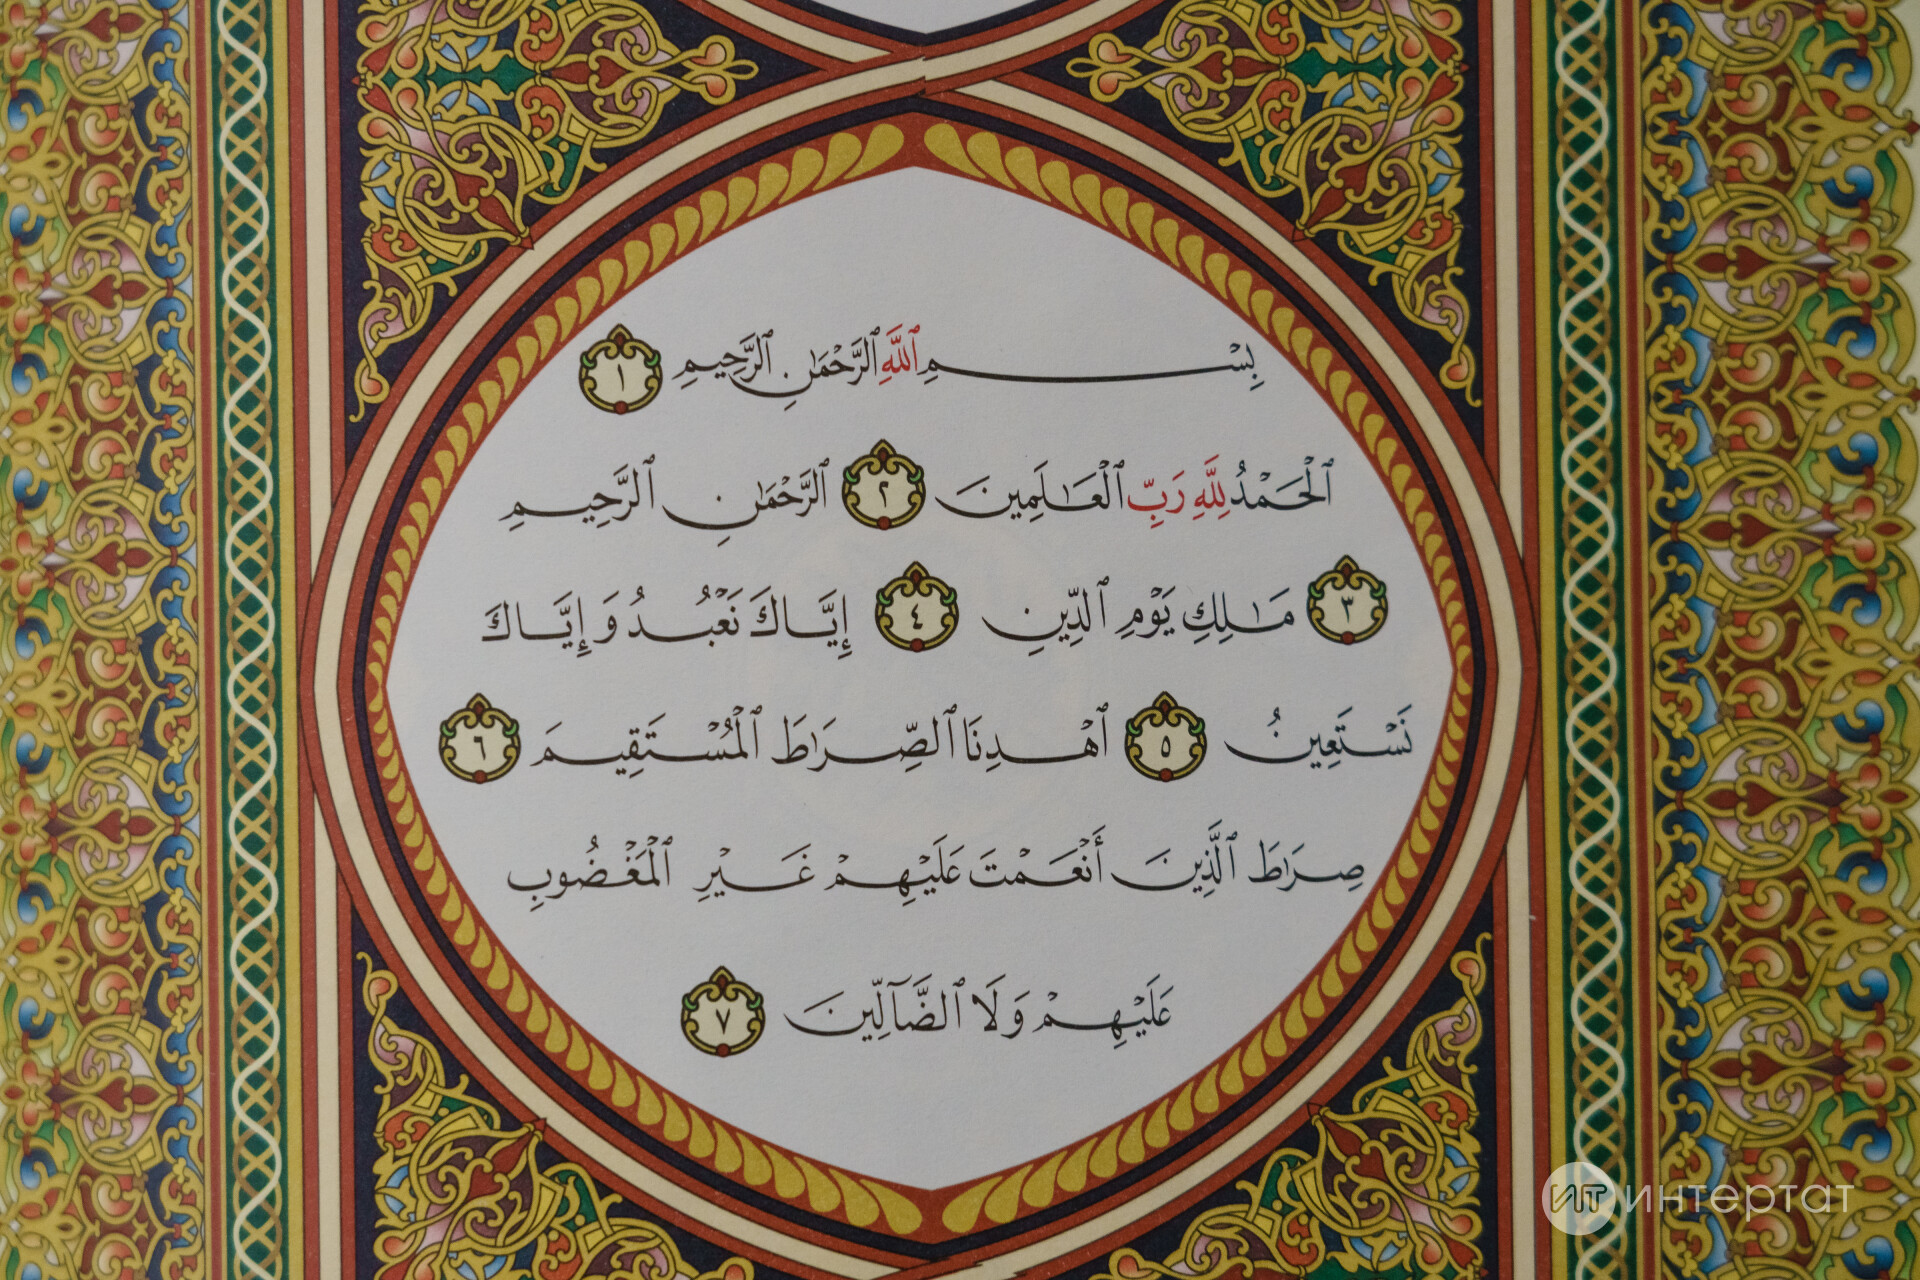 بِسْمِ ٱللَّهِ ٱلرَّحْمَٰنِ ٱلرَّحِيمِ ١
ٱلْحَمْدُ لِلَّهِ رَبِّ ٱلْعَٰلَمِينَ ٢ ٱلرَّحْمَٰنِ ٱلرَّحِيمِ
٣ مَٰلِكِ يَوْمِ ٱلدِّينِ ٤ إِيَّاكَ نَعْبُدُ وَإِيَّاكَ
نَسْتَعِينُ ٥ ٱهْدِنَا ٱلصِّرَٰطَ ٱلْمُسْتَقِيمَ ٦
صِرَٰطَ ٱلَّذِينَ أَنْعَمْتَ عَلَيْهِمْ غَيْرِ ٱلْمَغْضُوبِ
عَلَيْهِمْ وَلَا ٱلضَّآلِّينَ ٧
интертат